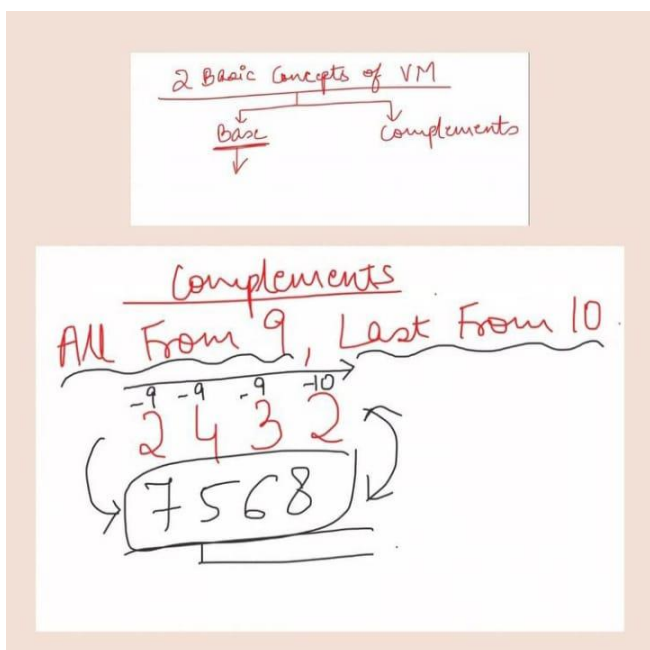 2 Basic Concepts of VM
Base Complements
Complements
All From 9, Last From 10
-9 -9 -9 -10
2 4 3 2
7 5 6 8